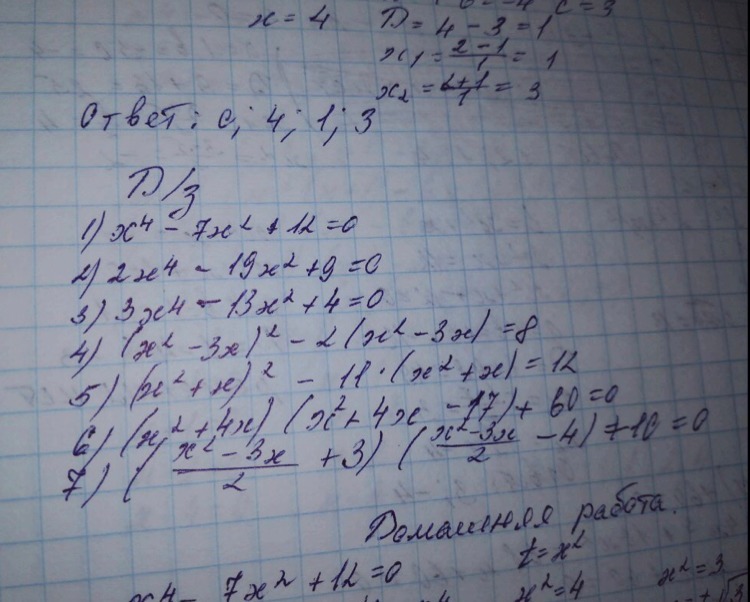 x = 4
b = -4 c = 3
D = 4 - 3 = 1
x₁ = (2-1)/1 = 1
x₂ = (2+1)/1 = 3
Ответ: 0; 4; 1; 3
Д/з
1) x⁴ - 7x² + 12 = 0
2) 2x⁴ - 19x² + 9 = 0
3) 3x⁴ - 13x² + 4 = 0
4) (x² - 3x)² - 2(x² - 3x) = 8
5) (x² + x)² - 11·(x² + x) = 12
6) (x² + 4x)(x² + 4x - 17) + 60 = 0
7) ((x² - 3x)/2 + 3)((x² - 3x)/2 - 4) + 10 = 0
Домашняя работа.
x⁴ - 7x² + 12 = 0
t = x²
x² = 4
x² = 3